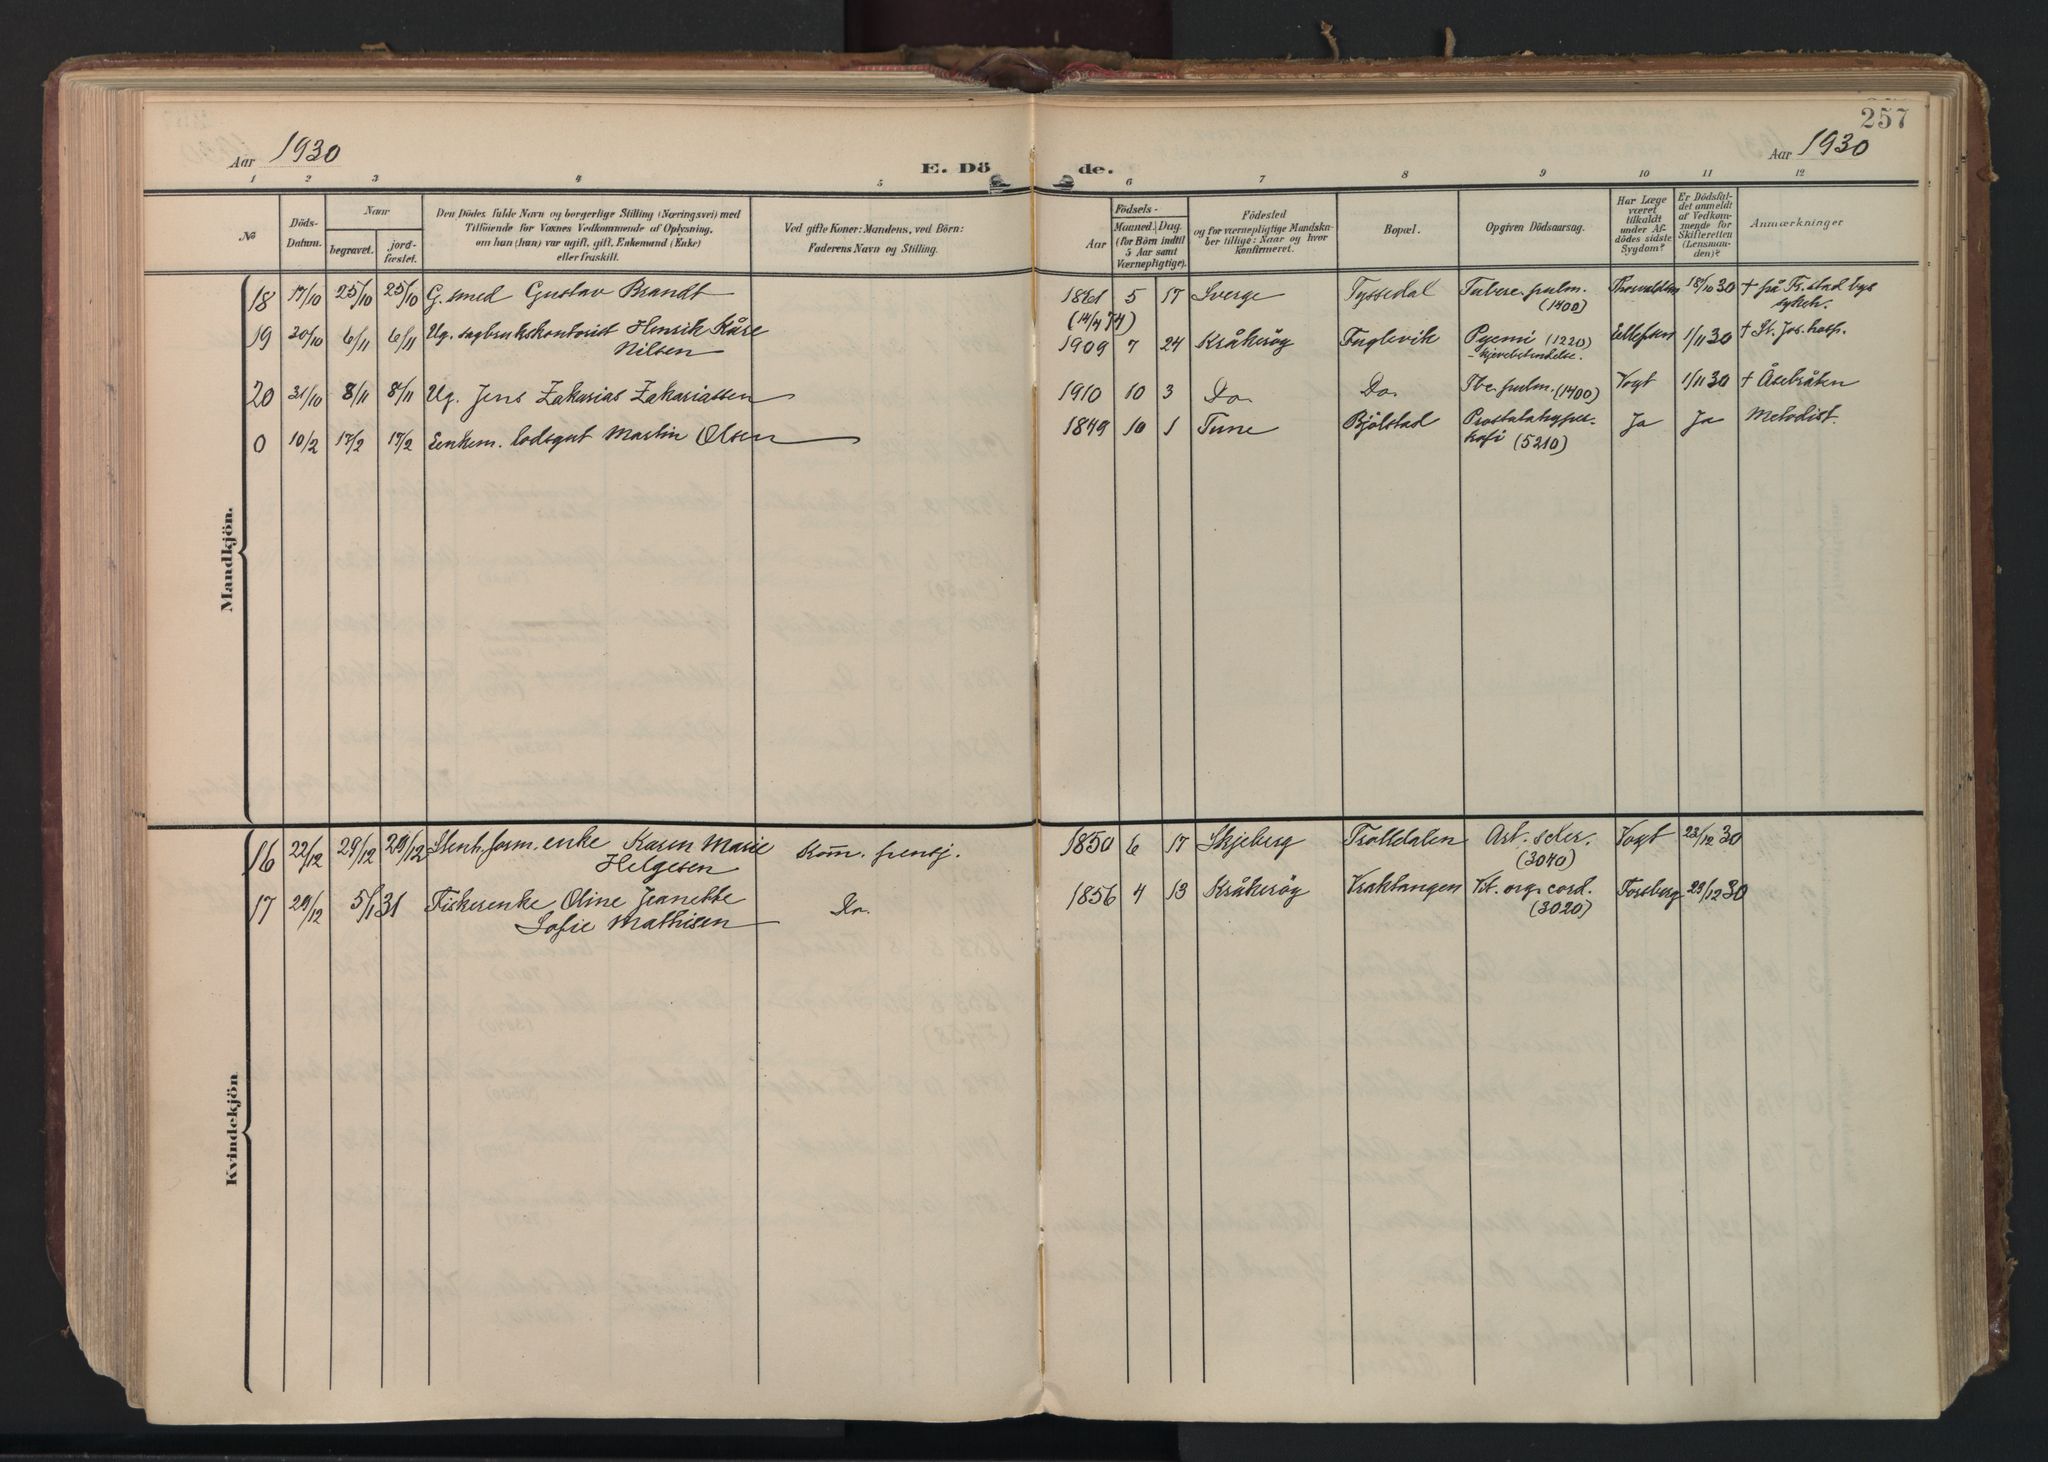 257
Aar 1930
E. Dö de.
Aar 1930
1 2 3 4 5 6 7 8 9 10 11 12
No
Döds-
Datum.
Naar
begravet.
jord-
fæstet.
Den Dödes fulde Navn og borgerlige Stilling (Næringsvei) med
Tilföiende for Voxnes Vedkommende af Oplysning,
om han (hun) var ugift, gift, Enkemand (Enke)
eller fraskilt.
Ved gifte Koner: Mandens, ved Börn:
Faderens Navn og Stilling.
Födsels-
Aar
Maaned. Dag.
(for Börn indtil
5 Aar samt
Værnepligtige).
Födested
og for værnepligtige Mandska-
ber tillige: Naar og hvor
konfirmeret.
Bopæl.
Opgiven Dödsaarsag.
Har Læge
været
tilkaldt
under Af-
dödes sidste
Sygdom?
Er Dödsfal-
det anmeldt
af Vedkom-
mende for
Skifteretten
(Lensman-
den)?
Anmærkninger
Mandkjön.
18 17/10 25/10 25/10 G. smed Gustav Brandt 1861 5 17 Sverge Tyssedal Tuberc. pulm. Thorvaldsen 18/10 30 + på Fr.stad bys
(14/4 74) (1400) sykeh.
19 30/10 6/11 6/11 Ug. sagbrukskontorist Henrik Kåre 1909 7 24 Kråkerøy Fuglevik Pyemi (1220) Ellefsen 1/11 30 + St. Jos. hosp.
Nilsen
20 31/10 8/11 8/11 Ug. Jens Zakarias Zakariassen 1910 10 3 Do Do. Tbc. pulm. (1400) Vogt 1/11 30 + Åsebråten
0 10/2 17/2 17/2 Enkem. lodsgut Martin Olsen 1849 10 1 Tune Bjølstad Prostatahyper- Ja Ja Metodist.
trofi (5210)
Kvindekjön
16 22/12 29/12 29/12 Stenh.form. enke Karen Marie Kom. prensj. 1850 6 17 Skjeberg Trolldalen Art. scler. Vogt 23/12 30
Helgesen (3040)
17 29/12 5/1 31 Fiskerenke Oline Jeanette Do. 1856 4 13 Kråkerøy Kraktangen Vit. org. cord. Forsberg 23/12 30
Sofie Mathisen (3020)